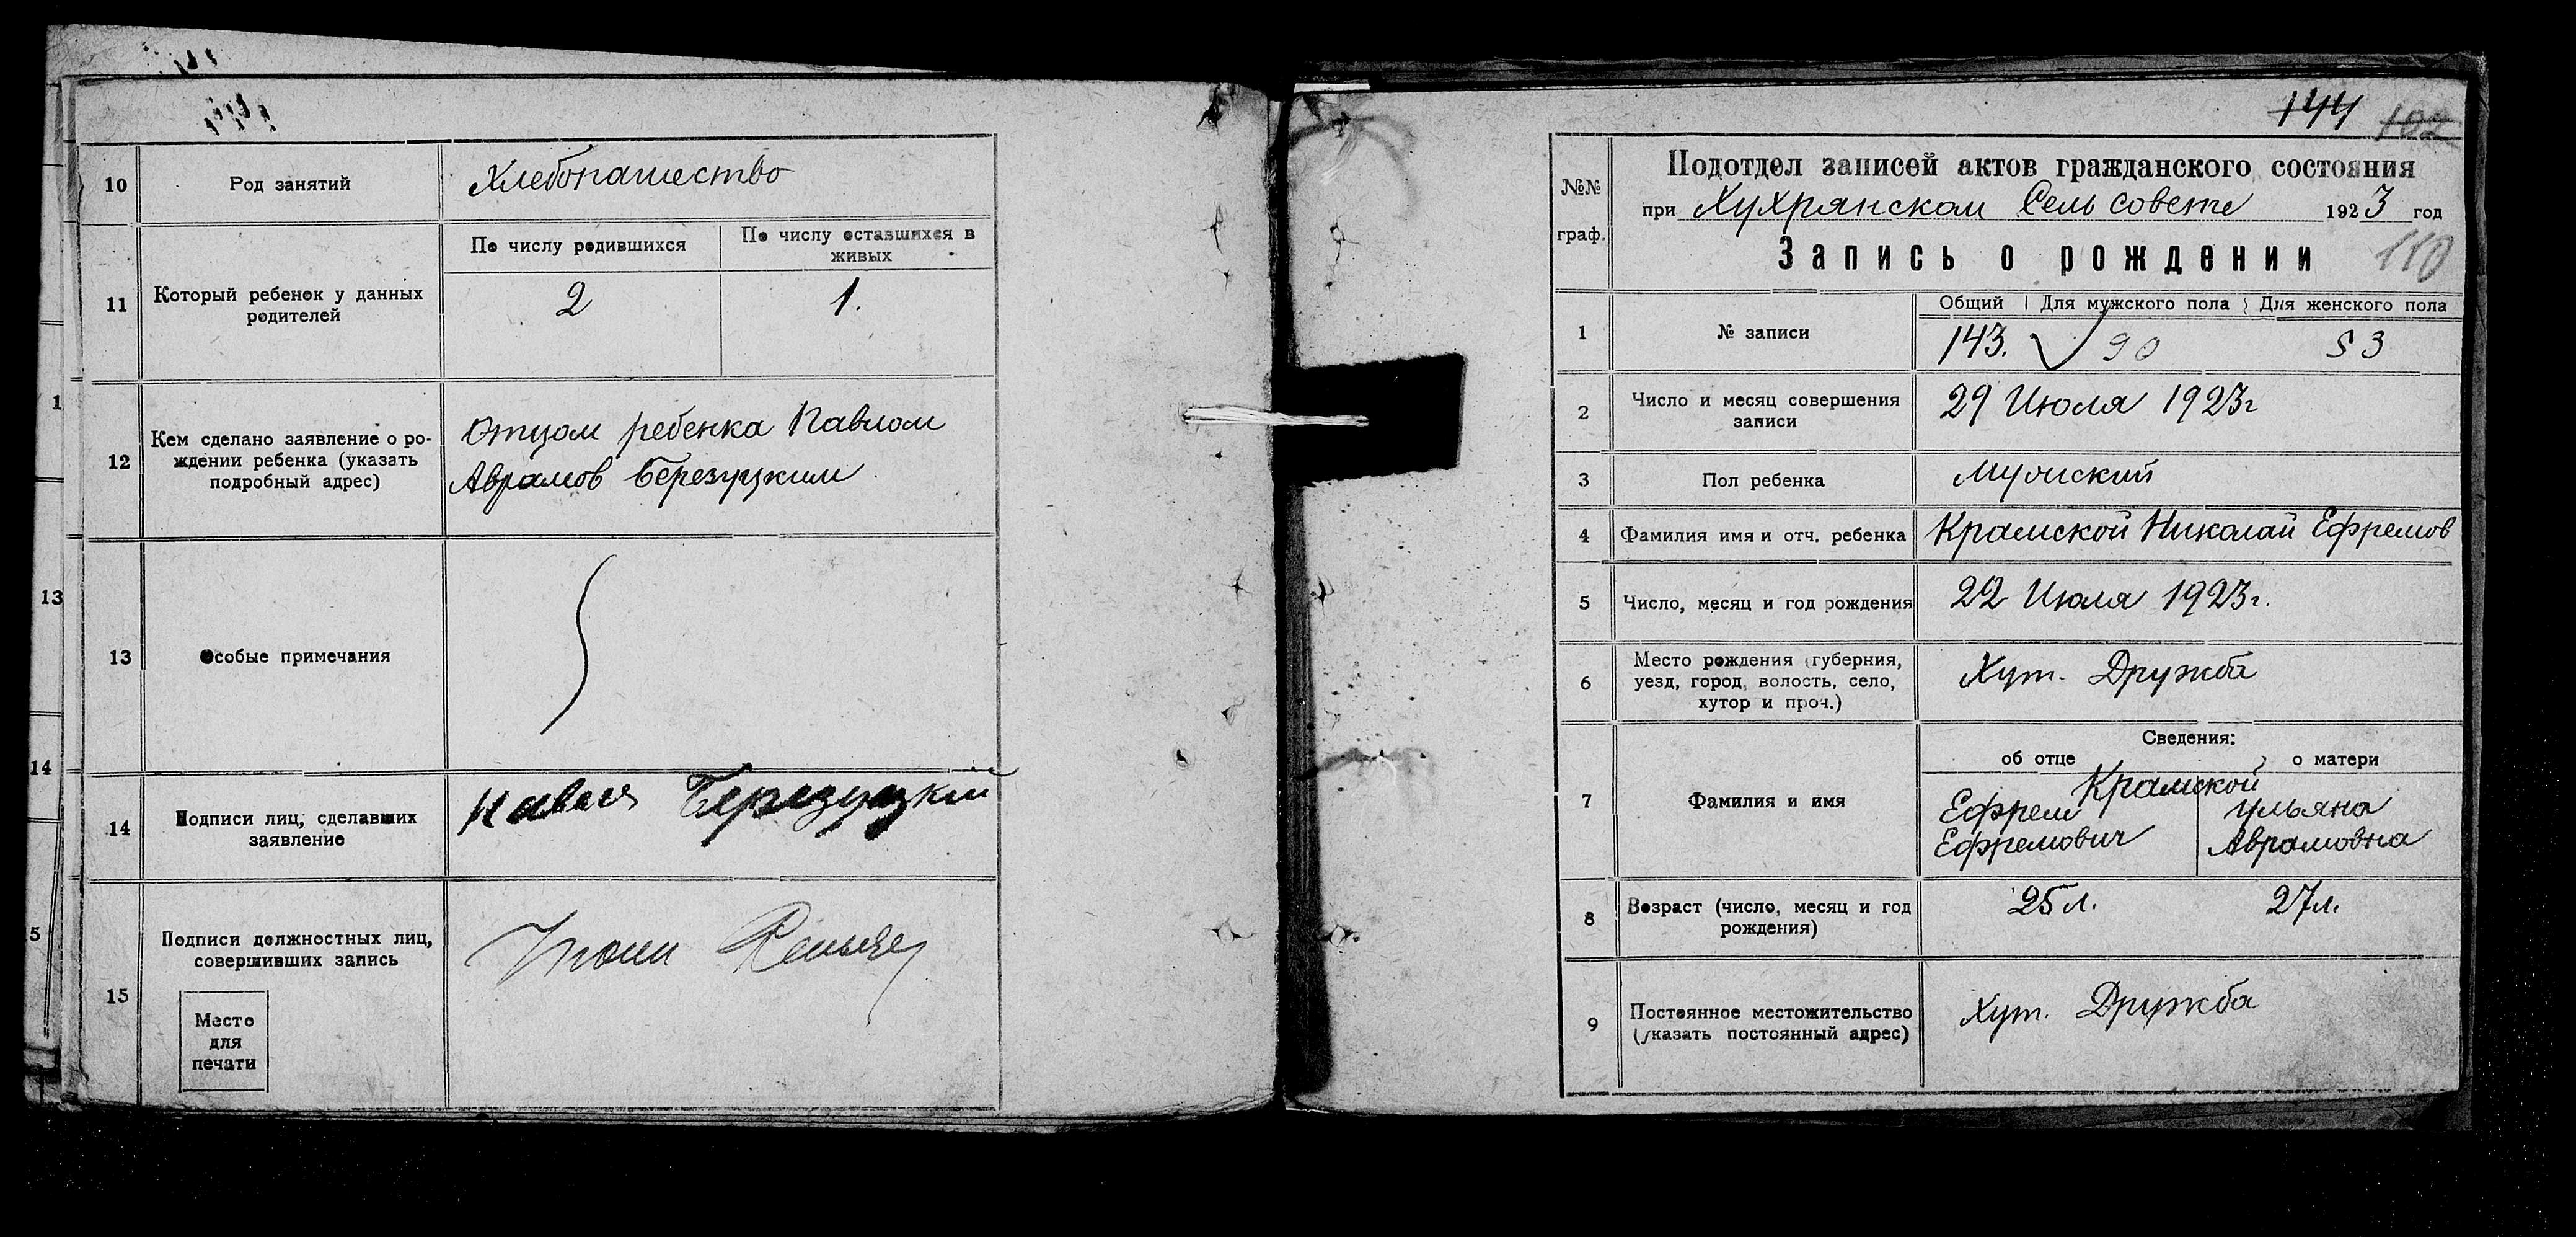 10
Род занятий
Хлебопашество
11
Который ребенок у данных
родителей
По числу родившихся
По числу оставшихся в
живых
2
1.
12
Кем сделано заявление о ро-
ждении ребенка (указать
подробный адрес)
Отцом ребенка Павлом
Аврамов Березуцким
13
Особые примечания
14
Подписи лиц, сделавших
заявление
Березуцкий
15
Подписи должностных лиц,
совершивших запись
Место
для
печати
1
13
14
5
144
102
№№
граф.
Подотдел записей актов гражданского состояния
при Хухрянском Сельсовете 1923 год
Запись о рождении
110
1
№ записи
Общий
Для мужского пола
Для женского пола
143.
90
53
2
Число и месяц совершения
записи
29 Июля 1923г
3
Пол ребенка
Мужский
4
Фамилия имя и отч. ребенка
Крамской Николай Ефремов
5
Число, месяц и год рождения
22 Июля 1923г.
6
Место рождения (губерния,
уезд, город, волость, село,
хутор и проч.)
Хут. Дружба
7
Фамилия и имя
Сведения:
об отце
о матери
Крамской
Ефрем
Ефремович
Ульяна
Аврамовна
8
Возраст (число, месяц и год
рождения)
25 л.
27 л.
9
Постоянное местожительство
(указать постоянный адрес)
Хут. Дружба